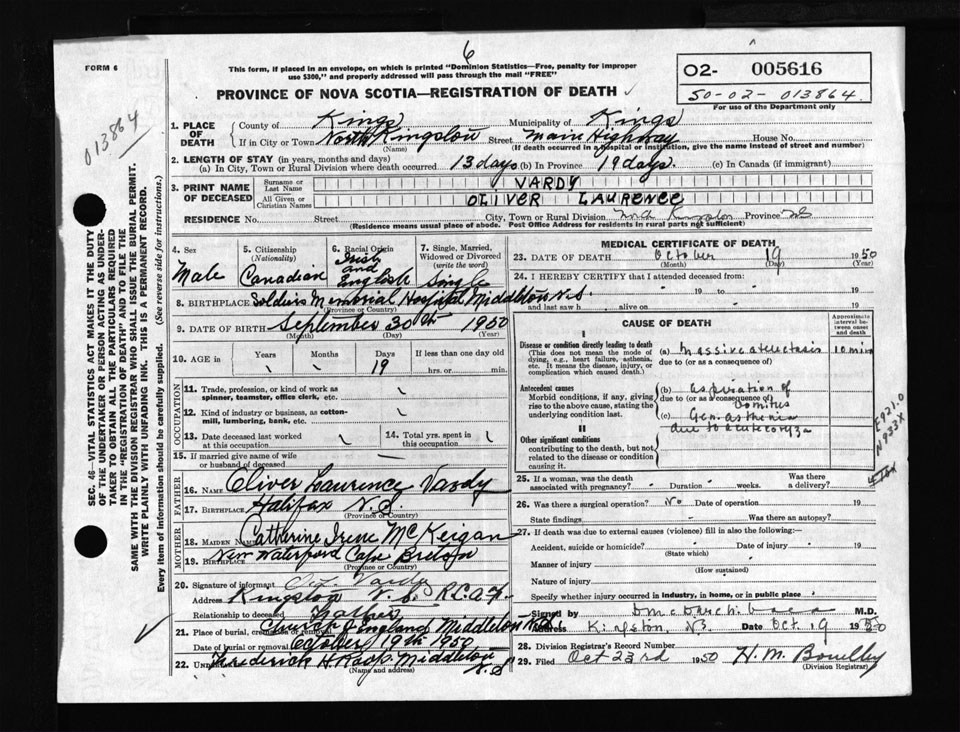 6
FORM 6
This form, if placed in an envelope, on which is printed "Dominion Statistics—Free, penalty for improper
use $300," and properly addressed will pass through the mail "FREE"
PROVINCE OF NOVA SCOTIA—REGISTRATION OF DEATH
O2- 005616
50-02-013864
For use of the Department only
013864
SEC. 46—VITAL STATISTICS ACT MAKES IT THE DUTY
OF THE UNDERTAKER OR PERSON ACTING AS UNDER-
TAKER TO OBTAIN ALL THE PARTICULARS REQUIRED
IN THE "REGISTRATION OF DEATH" AND TO FILE THE
SAME WITH THE DIVISION REGISTRAR WHO SHALL ISSUE THE BURIAL PERMIT.
WRITE PLAINLY WITH UNFADING INK. THIS IS A PERMANENT RECORD.
Every item of information should be carefully supplied. (See reverse side for instructions.)
1. PLACE OF DEATH County of Kings Municipality of Kings
If in City or Town North Kingston Street Main Highway House No.
(Name) (If death occurred in a hospital or institution, give the name instead of street and number)
2. LENGTH OF STAY (in years, months and days)
(a) In City, Town or Rural Division where death occurred 13 days (b) In Province 19 days. (c) In Canada (if immigrant)
3. PRINT NAME OF DECEASED Surname or Last Name VARDY
All Given or Christian Names OLIVER LAURENCE
RESIDENCE No. Street City, Town or Rural Division Kingston Province NS
(Residence means usual place of abode. Post Office Address for residents in rural parts not sufficient)
4. Sex Male
5. Citizenship (Nationality) Canadian
6. Racial Origin Irish and English
7. Single, Married, Widowed or Divorced (write the word) Single
8. BIRTHPLACE Soldiers Memorial Hospital Middleton N.S.
(Province or Country)
9. DATE OF BIRTH September 30th 1950
(Month) (Day) (Year)
10. AGE in Years Months Days 19 If less than one day old hrs. or min.
OCCUPATION
11. Trade, profession, or kind of work as spinner, teamster, office clerk, etc.
12. Kind of industry or business, as cotton-mill, lumbering, bank, etc.
13. Date deceased last worked at this occupation
14. Total yrs. spent in this occupation
15. If married give name of wife or husband of deceased
FATHER
16. NAME Oliver Laurence Vardy
17. BIRTHPLACE Halifax N.S.
(Province or Country)
MOTHER
18. MAIDEN NAME Catherine Irene McKeigan
19. BIRTHPLACE New Waterford Cape Breton
(Province or Country)
20. Signature of informant Vardy
Address Kingston N.S. R.C.A.F.
Relationship to deceased Father
21. Place of burial, cremation or removal Church of England Middleton N.S.
Date of burial or removal October 19th 1950
22. Undertaker Frederick H. Middleton N.S
(Name and address)
MEDICAL CERTIFICATE OF DEATH
23. DATE OF DEATH October 19 1950
(Month) (Day) (Year)
24. I HEREBY CERTIFY that I attended deceased from:
19 to 19
and last saw h alive on 19
CAUSE OF DEATH
Approximate interval between onset and death
I
Disease or condition directly leading to death
(This does not mean the mode of dying, e.g., heart failure, asthenia, etc. It means the disease, injury, or complication which caused death.)
(a) Massive atelectasis 10 min
due to (or as a consequence of)
Antecedent causes
Morbid conditions, if any, giving rise to the above cause, stating the underlying condition last.
(b) Aspiration of vomitus
due to (or as a consequence of)
(c) Gen. asthenia due to acute coryza
II
Other significant conditions contributing to the death, but not related to the disease or condition causing it.
E921.0
N933X
25. If a woman, was the death associated with pregnancy? Duration weeks. Was there a delivery?
26. Was there a surgical operation? No Date of operation 19
State findings Was there an autopsy?
27. If death was due to external causes (violence) fill in also the following:—
Accident, suicide or homicide? Date of injury 19
(State which)
Manner of injury
(How sustained)
Nature of injury
Specify whether injury occurred in industry, in home, or in public place
Signed by M.D.
Address Kingston, NS. Date Oct. 19 1950
28. Division Registrar's Record Number
29. Filed Oct 23rd 1950 H. M.
(Division Registrar)